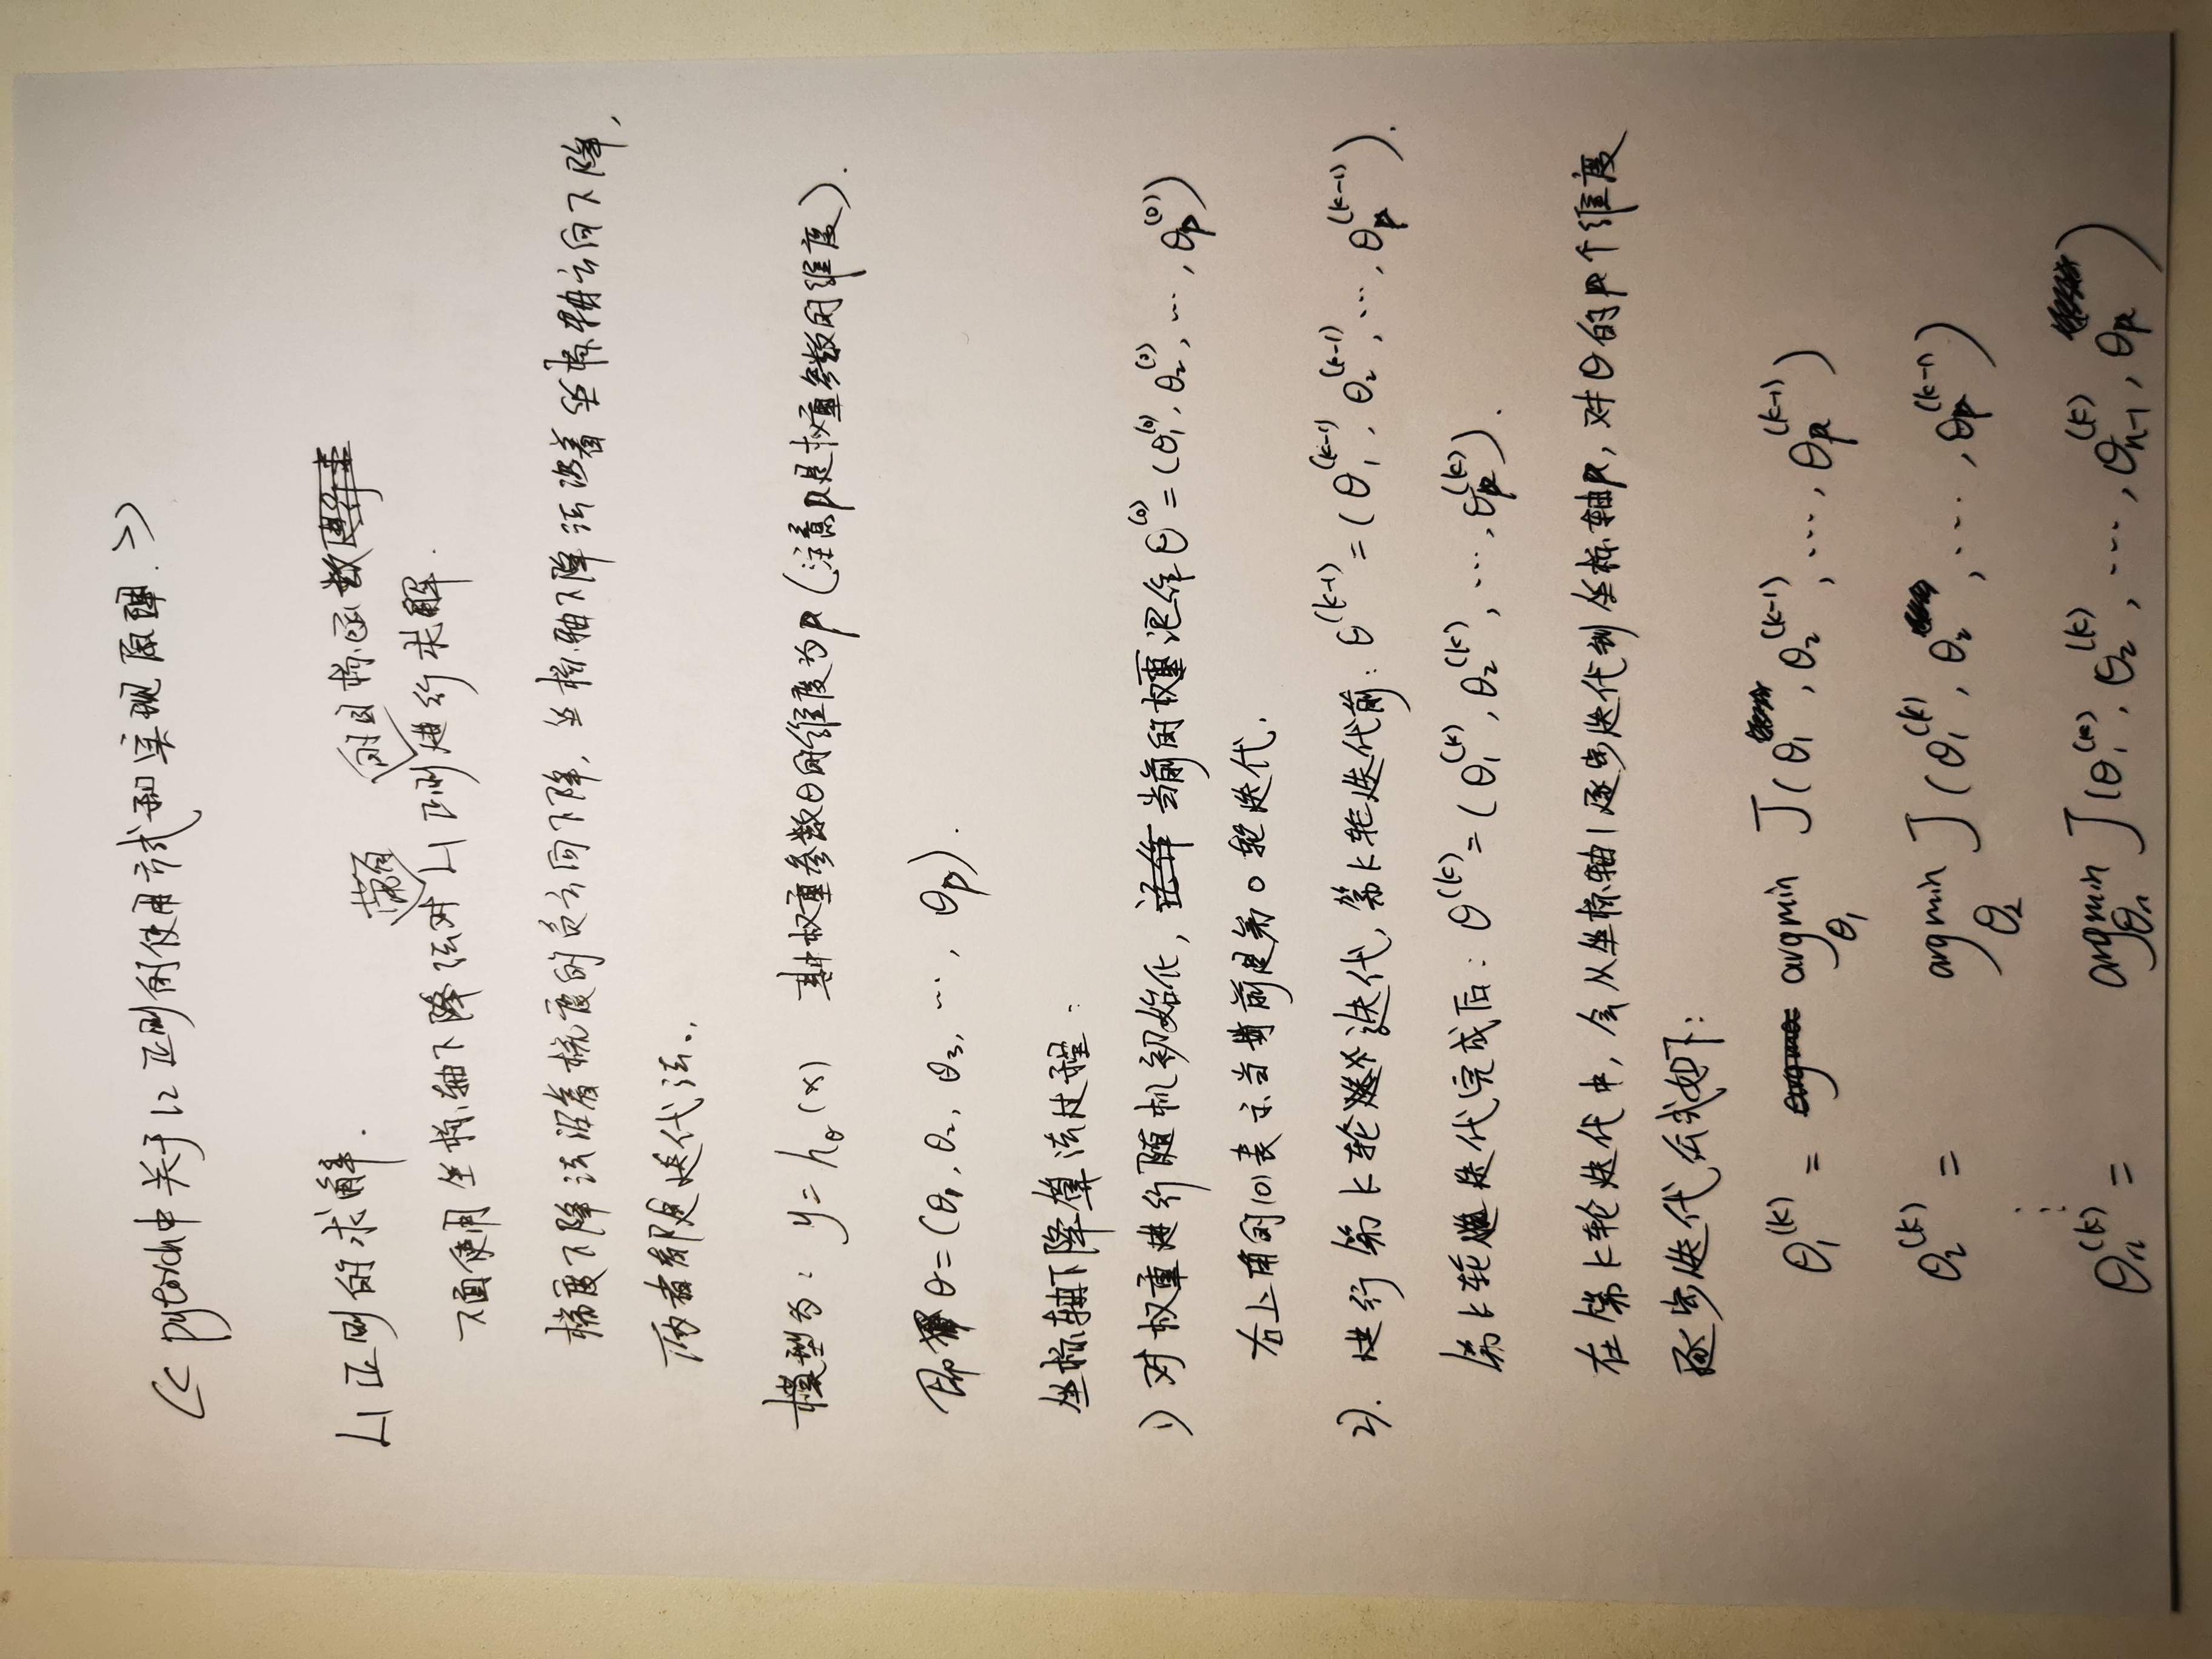 <<pytorch中关于l2正则的使用方式和实现原理.>>
L1正则的求解.
带有 的目标函数
下面使用坐标轴下降法对L1正则进行求解.
梯度下降法沿着梯度的负方向下降,坐标轴下降法沿着坐标轴方向下降,
两者都是迭代法.
模型为: y=hθ(x) 其中权重参数θ的维度为p(注意p是权重参数的维度).
即θ=(θ1,θ2,θ3,…,θp).
坐标轴下降算法过程:
1) 对权重进行随机初始化,当前的权重记作θ^(0)=(θ1^(0),θ2^(0),…,θp^(0))
右上角的(0)表示当前是第0轮迭代.
2). 进行第k轮迭代,第k轮迭代前:θ^(k-1)=(θ1^(k-1),θ2^(k-1),…,θp^(k-1)).
第k轮迭代完成后:θ^(k)=(θ1^(k),θ2^(k),…,θp^(k)).
在第k轮迭代中,会从坐标轴1逐步迭代到坐标轴p,对θ的p个维度
逐步迭代公式如下:
θ1^(k) = argmin θ1 J(θ1,θ2^(k-1),…,θp^(k-1))
θ2^(k) = argmin θ2 J(θ1^(k),θ2,…,θp^(k-1))
⋮
θn^(k) = argmin θn J(θ1^(k),θ2^(k),…,θn-1^(k),θp)